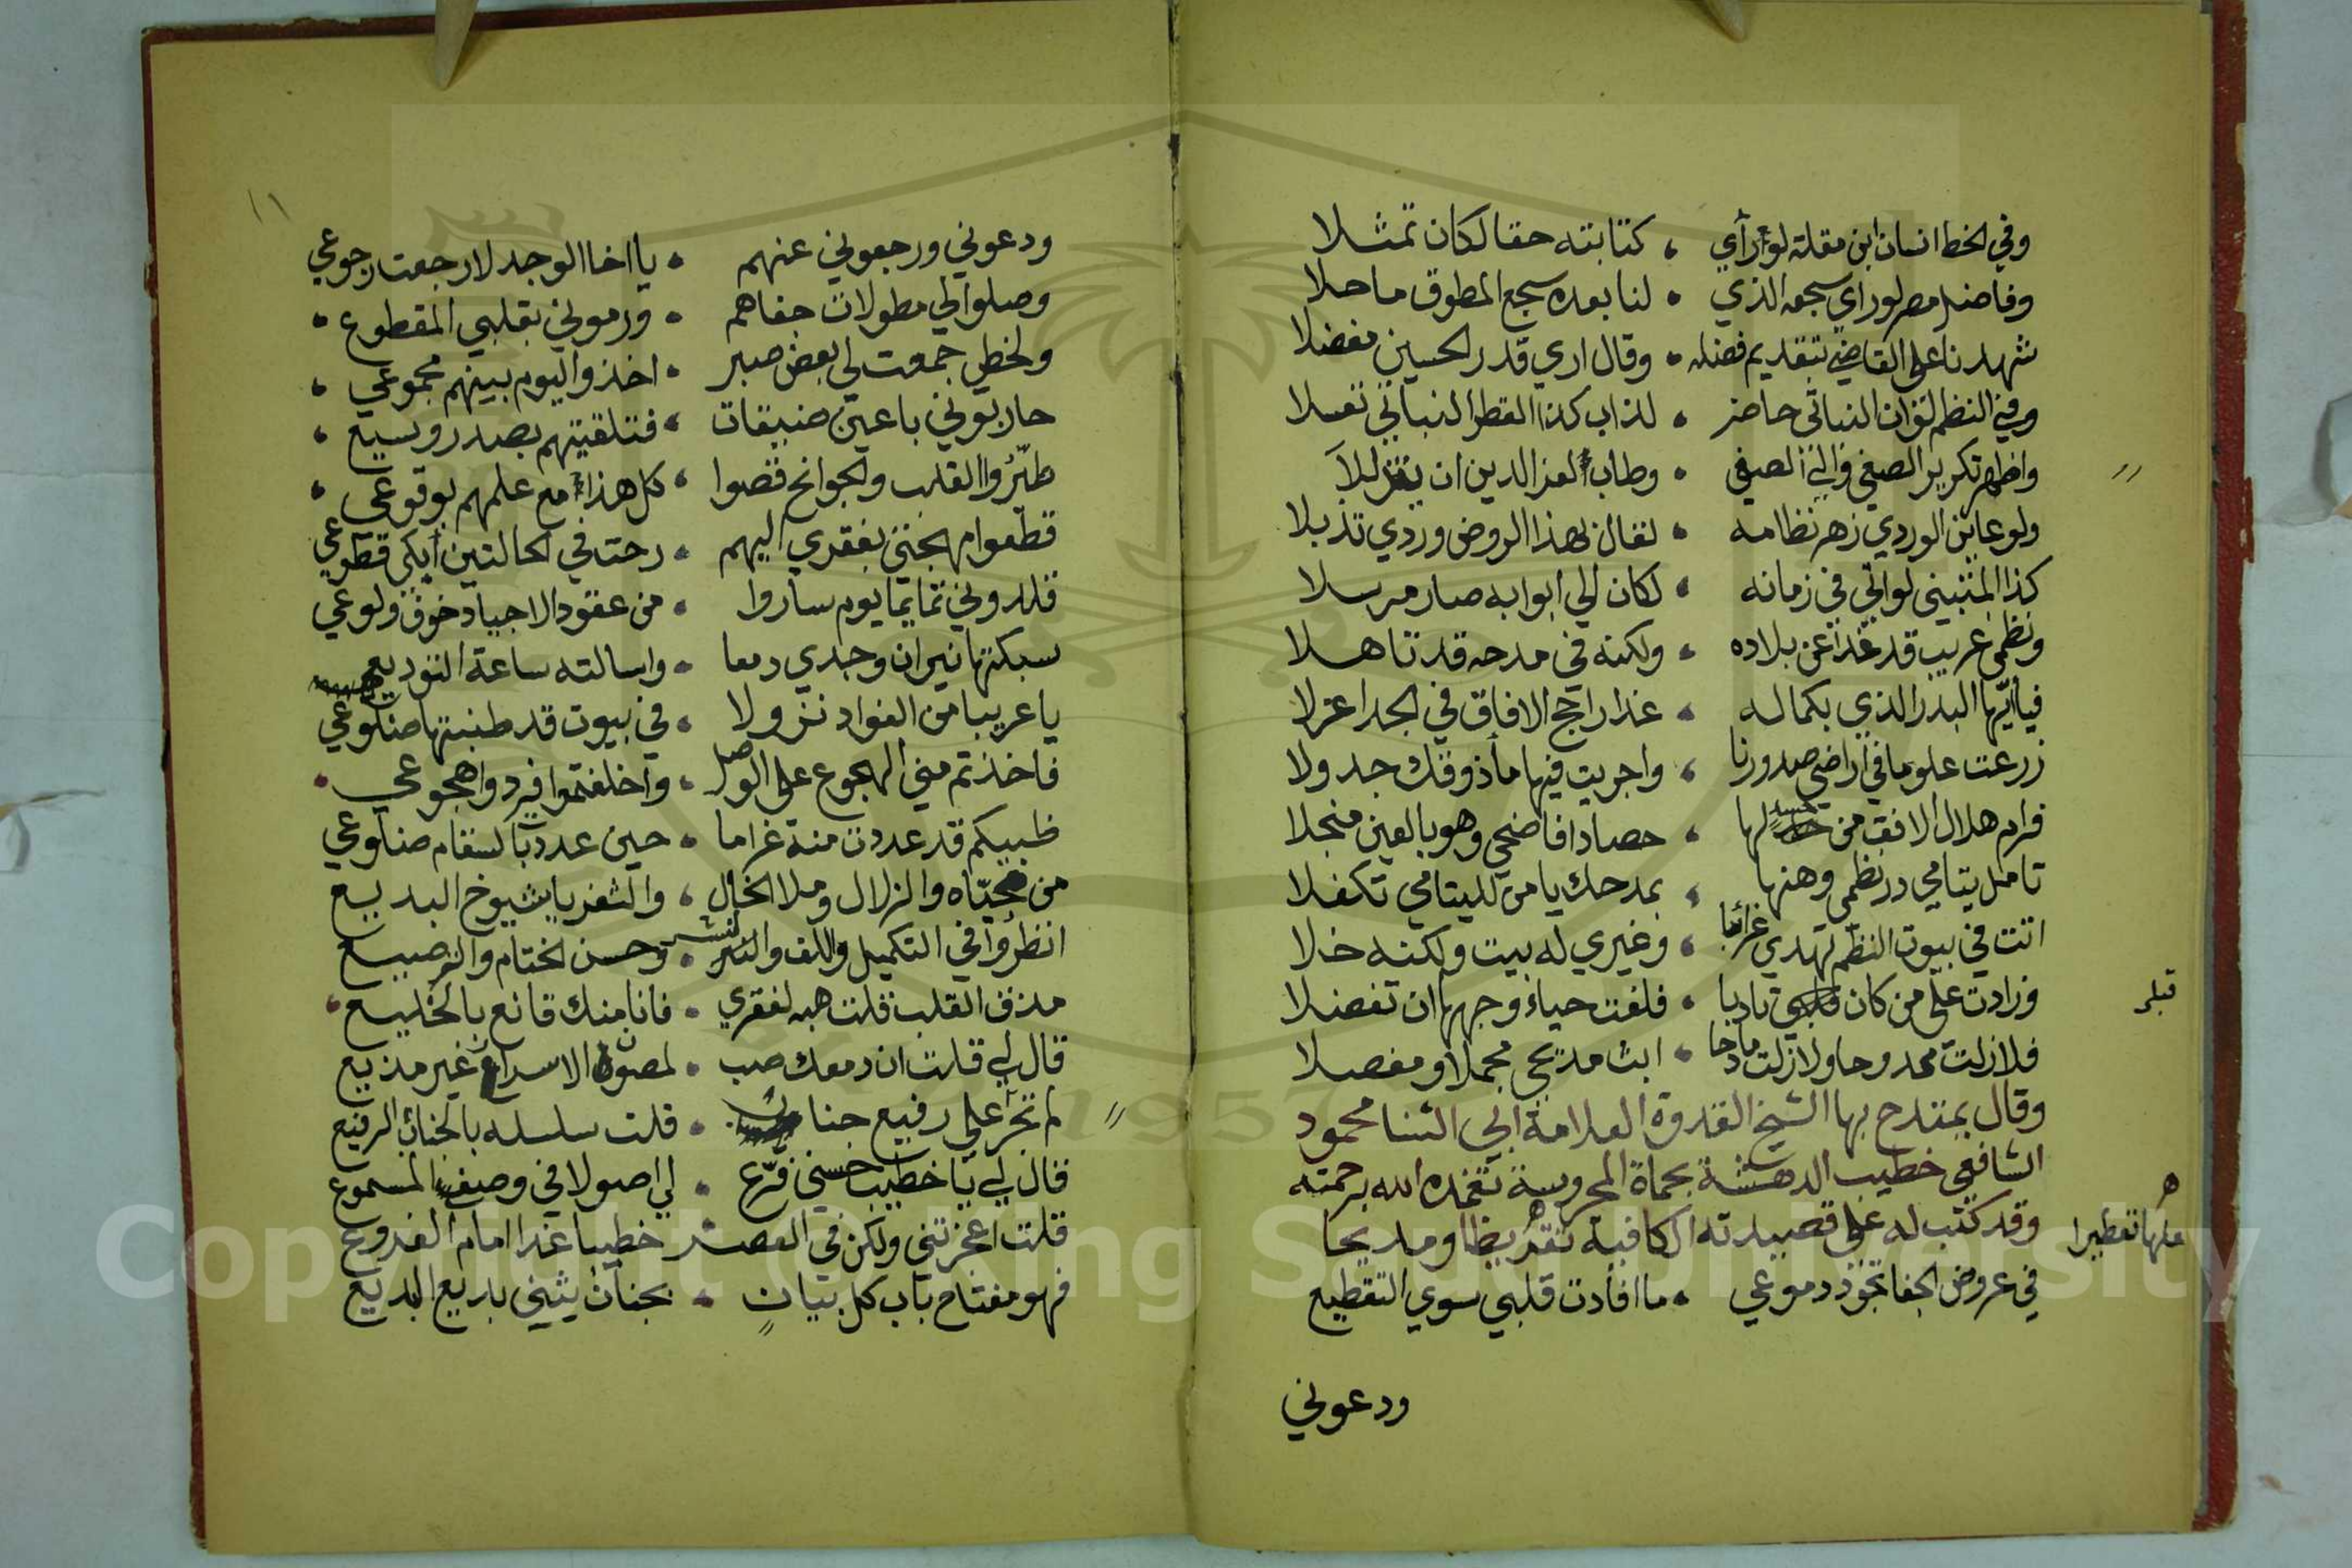 وفي الخط انسان ابن مقلة لو رأي ، كتابته حقا لكان تمثلا
وفاضل مصر لو راي سجعه الذي • لنا بعده سجع المطوق ما حلا
شهدنا على القاضي بتقديم فضله • وقال اري قدر الحسين مفضلا
وفي النظم لو ان النباتي حاضر • لذاب كذا القطر النباتي تعسلا
واظهر تكرير الصفي الصفي • وطاب لعز الدين ان يتغزلا
ولو عاين الوردي زهر نظامه • لقال لهذا الروض وردي تذبلا
كذا المتنبيني لو اتي في زمانه • لكان الي ابوابه صار مرسلا
ونظمي غريب قد غدا عن بلاده • ولكنه في مدحه قد تاهلا
فيا ايها البدر الذي بكماله • غدا راجح الافاق في الجد اعزلا
زرعت علوما في اراضي صدورنا • واجريت فيها ماذوقك جدولا
فرام هلال الافق من لها • حصادا فاضحي وهو بالعين منجلا
تامل يتامي در نظمي وهنها • بمدحك يا من لليتامي تكفلا
اتت في بيوت النظم تهدي غرائبا • وغيري له بيت ولكنه خلا
وزادت علي من كان قبلي تادبا • فلفت حياء وجهها ان تفضلا
فلا زلت ممدوحا ولا زلت مادحا • ابث مديحي مجملا ومفصلا
وقال يمتدح بها الشيخ القدوة العلامة ابي الثنا محمود
الشافعي خطيب الدهشة بحماة المحروسة تغمده الله برحمته
وقد كتب له على قصيدته الكافية تقريظا ومديحا
في عروض الجفا بحور دموعي • ما افادت قلبي سوي التقطيع
ودعوني
قبلي
علها تقطيرا
١١
ودعوني ورجعوني عنهم • يا اخا الوجد لا رجعت رجوعي
وصلوا لي مطولات جفاهم • ورموني بقلبي المقطوع •
ولحظي جمعت لي بعض صبر • اخذوا اليوم بينهم مجموعي •
حاربوني باعين ضيقات • فتلقيتهم بصدر وسيع •
طيروا القلب والجوانح قصوا • كل هذا مع علمهم بوقوعي •
قطعوا مهجتي بفقري اليهم • رحت في الحالتين ابكي قطوعي
قلدوني تمايما يوم ساروا • من عقود الاجياد خوف ولوعي
سبكتها نيران وجدي دمعا • واسالته ساعة التوديع
يا عريبا من الفواد نزولا • في بيوت قد طنبتها ضلوعي
فاخذتم مني الهجوع على الوصل • واخلفتموا فردوا هجوعي •
ظبيكم قد عددت منه غراما • حين عدد بالسقام ضلوعي
من محياه والزلال وملا الخال • والثغر يا شيوخ البديع
انظروا في التكميل واللف والنشر • وحسن الختام والترصيع
مذ فق القلب قلت هبه لفقري • فانا منك قانع بالخليع •
قال لي قلت ان دمعك صب • لمصون الاسرار غير مذيع
لم تجر علي رفيع جناب • قلت سلسله بالجناب الرفيع
قال لي يا خطيب حسني فرع • لي اصولا في وصفي المسموع
قلت اعجزتني ولكن في العصر خطيبا غدا امام الفروع
فهو مفتاح باب كل بيان • بجنان يثني بديع البديع
Copyright © King Saud University
1957